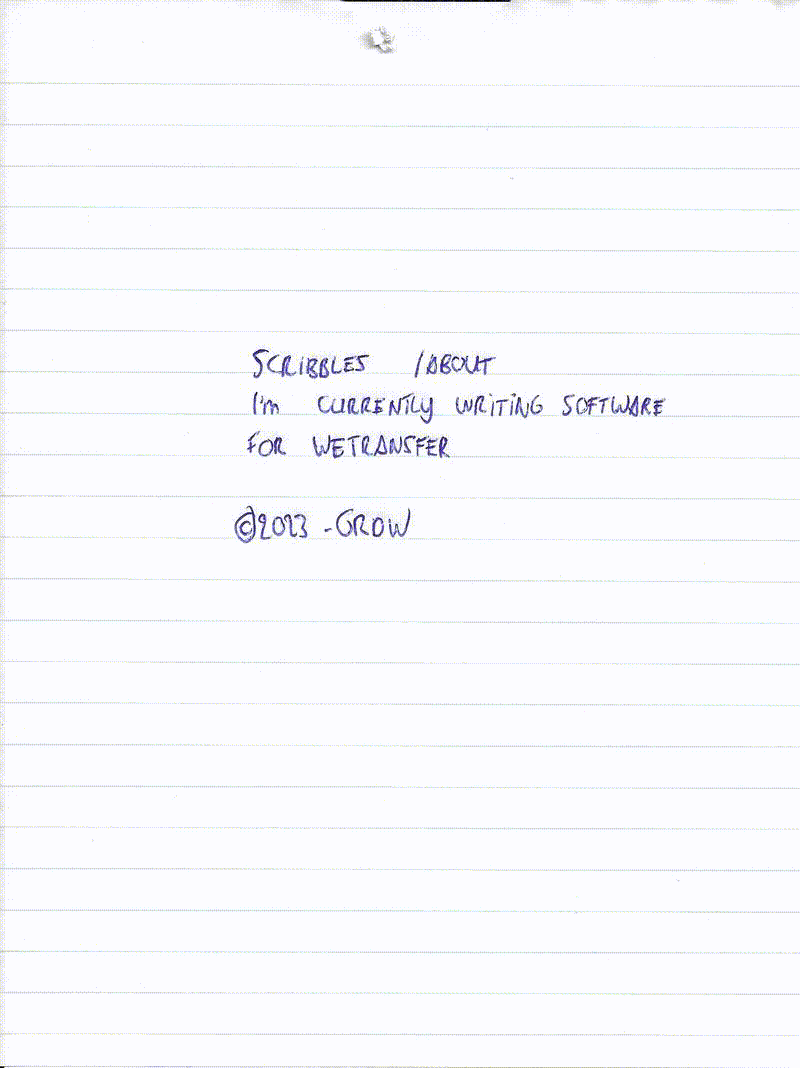 SCRIBBLES /ABOUT
I'm CURRENTLY WRITING SOFTWARE
FOR WETRANSFER
©2023 -GROW